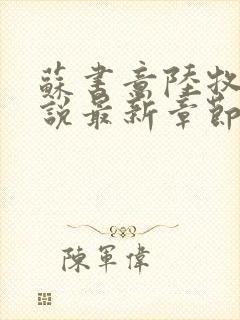 蘇書意陸牧
說最新章節
陳軍偉